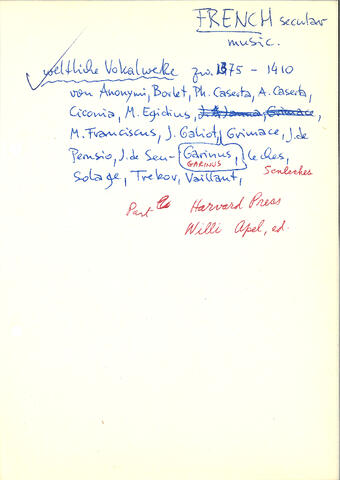 FRENCH secular
music.
weltliche Vokalwerke zw. 1375 - 1410
von Anonymi, Borlet, Ph. Caserta, A. Caserta,
Ciconia, M. Egidius, J. d Janna, Grimace,
M. Franciscus, J. Galiot, Grimace, J. de
Pensio, J. de Sen- Garinus, leches,
GARINUS
Solage, Trebor, Vaillant,
Senleches
Part Harvard Press
Willi Apel, ed.